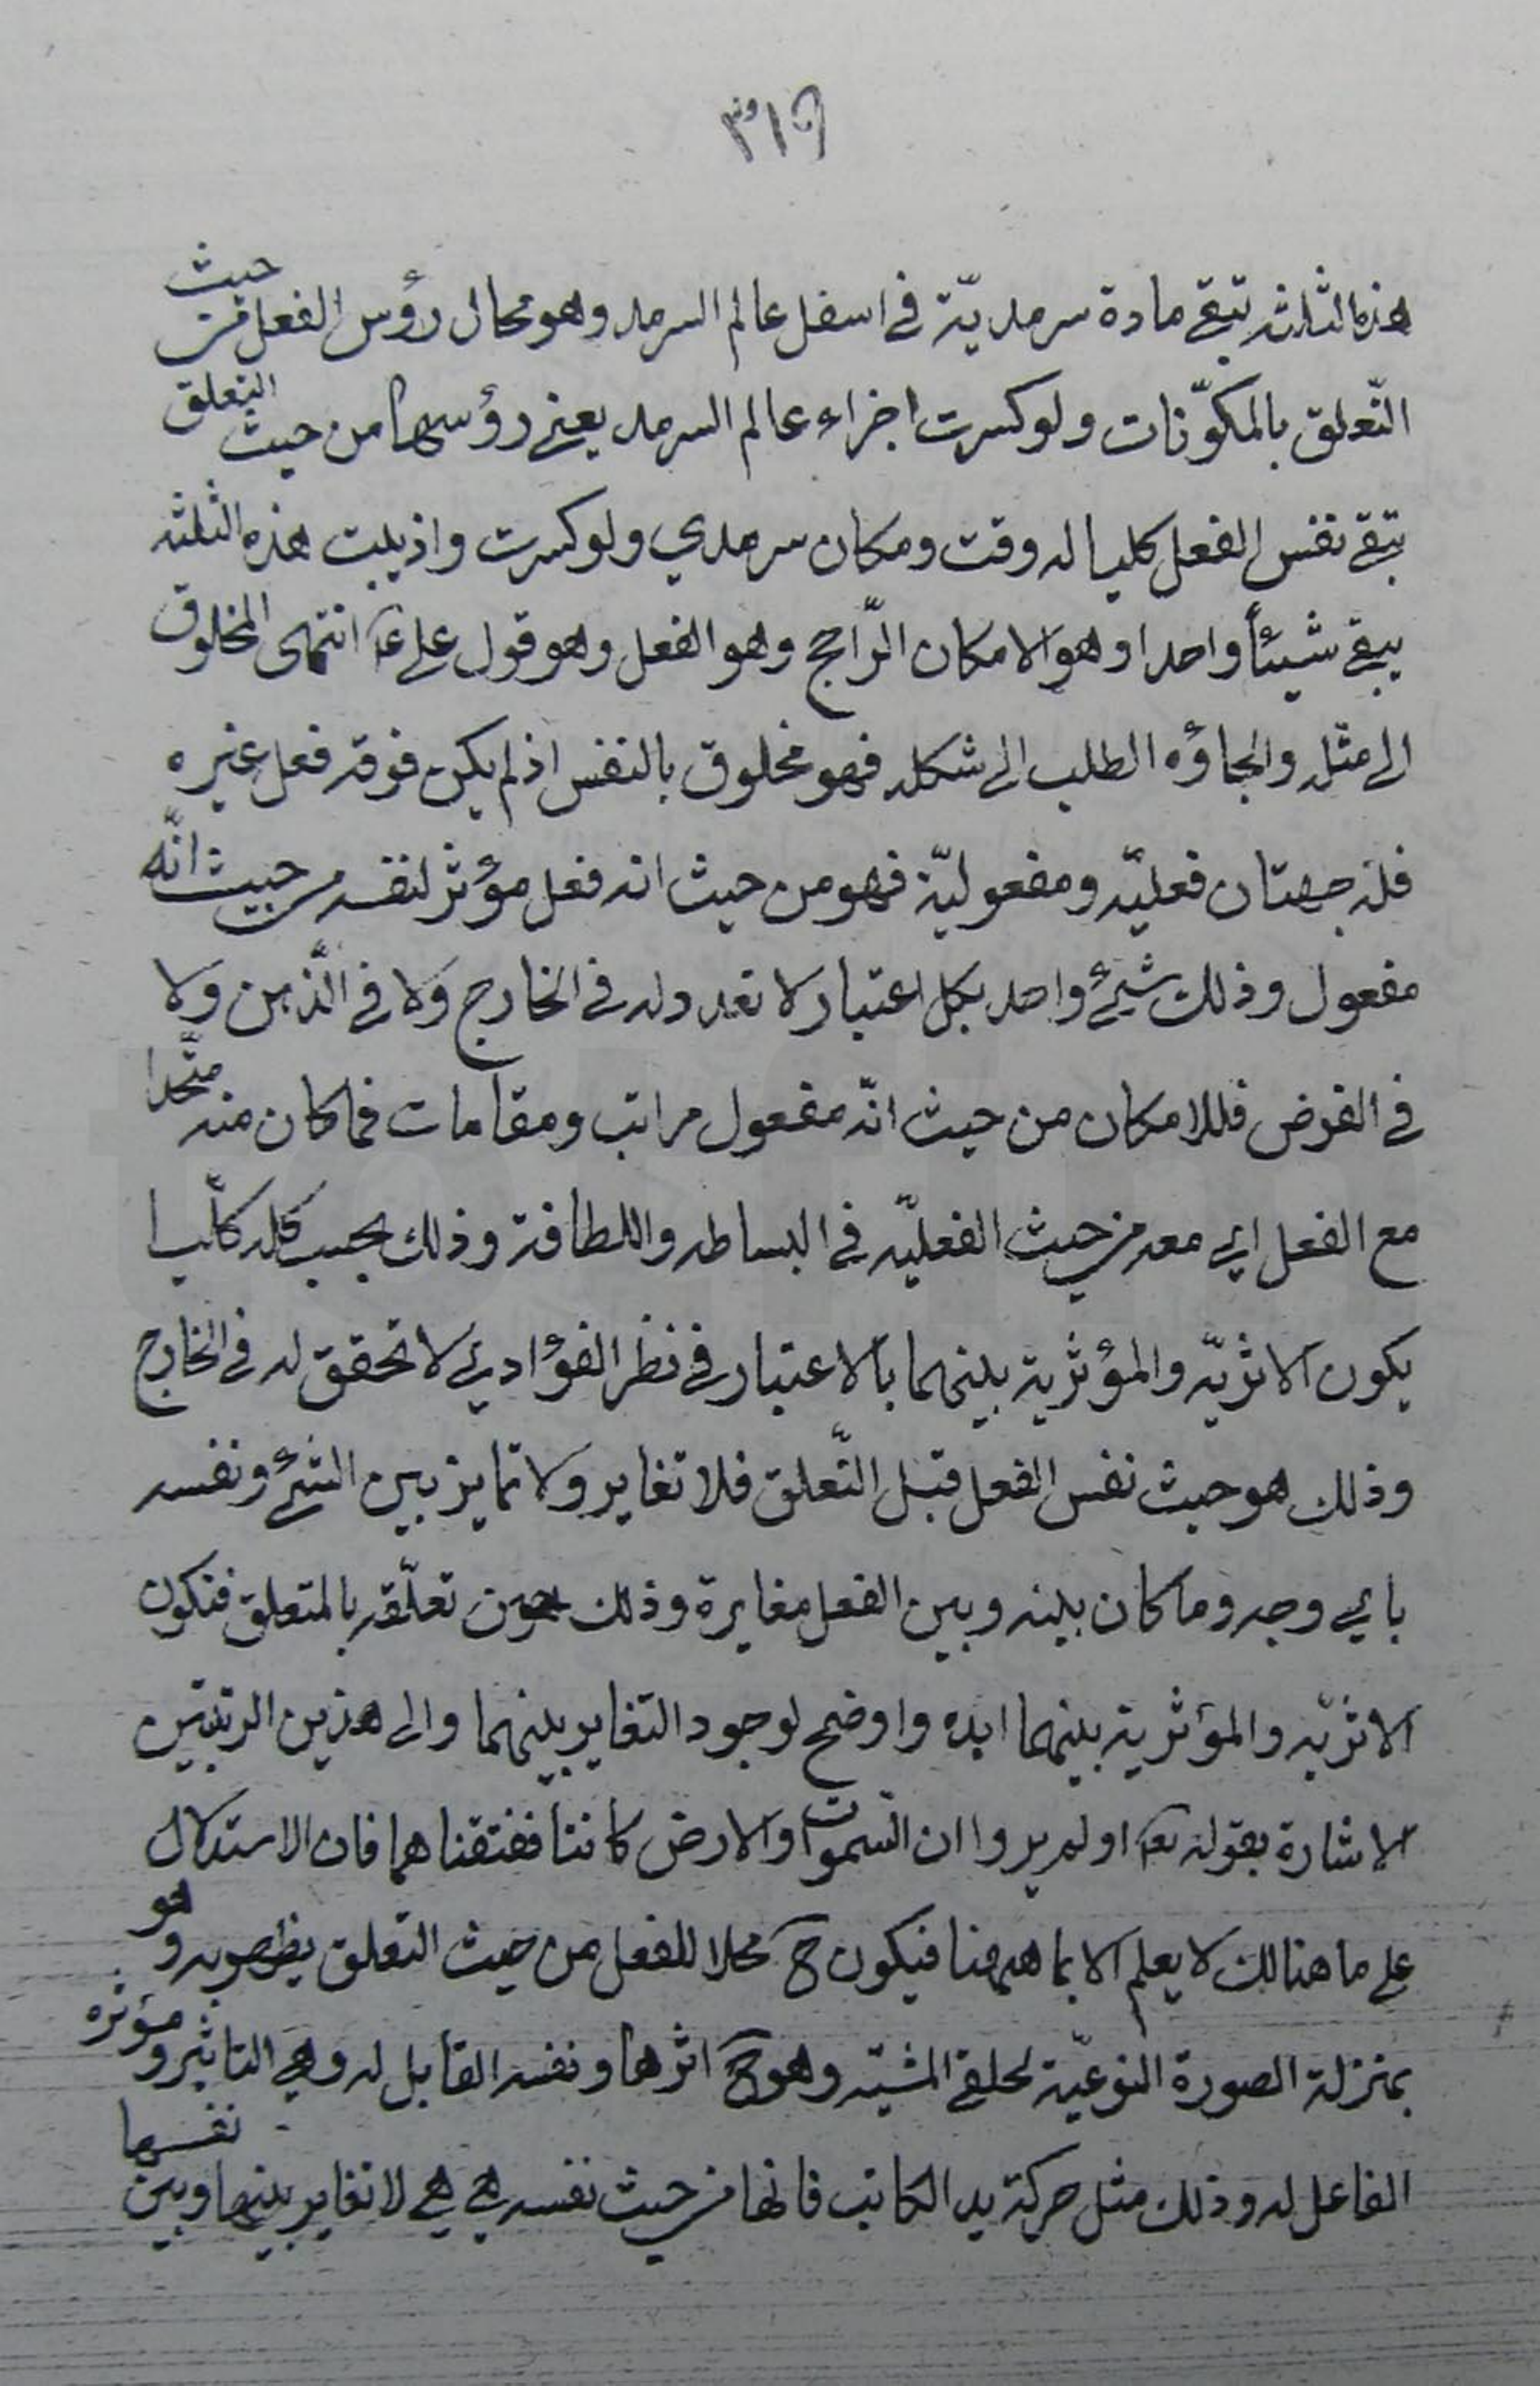 هذه الثلثه تبقى مادة سرمديّة فى اسفل عالم السرمد وهو محال رؤس الفعل من حيث
التّعلق بالمكوّنات ولو كسرت اجزاء عالم السرمد يعنى رؤسها من حيث التعلق
تبقى نفس الفعل كليا له وقت ومكان سرمدي ولو كسرت واذيبت هذه الثلثه
يبقى شيئاً واحدا وهو الامكان الرّاجح وهو الفعل وهو قول على ع انتهى المخلوق
الى مثله والجاؤه الطلب الى شكله فهو مخلوق بالنفس اذ لم يكن فوقه فعل غيره
فله جهتان فعليّه ومفعوليّة فهو من حيث انه فعل مؤثر لنفسه من حيث انّه
مفعول وذلك شيئ واحد بكل اعتبار لا تعدد له فى الخارج ولا فى الّذهن ولا
فى الفرض فللامكان من حيث انّه مفعول مراتب ومقامات فما كان منه متّحدا
مع الفعل اي معه من حيث الفعليّه فى البساطه واللطافة وذلك بحسب كله كلّيا
يكون الاثريّه والمؤثرية بينهما بالاعتبار فى نظر الفؤادي لا تحقق له فى الخارج
وذلك هو حيث نفس الفعل قبل التّعلق فلا تغاير ولا تمايز بين الشئ ونفسه
باي وجه وما كان بينه وبين الفعل مغايرة وذلك حين تعلّقه بالمتعلق فتكون
الاثريّه والمؤثرية بينهما ابده واوضح لوجود التغاير بينهما والى هذين الرتبتين
الاشارة بقوله تع اولم يروا ان السموات والارض كانتا ففتقناهما فان الاستدلال
على ما هنالك لا يعلم الا بما هيهنا فيكون ح محلا للفعل من حيث التعلق يظهر به وهو
بمنزلة الصورة النوعيّة لحلقى المشيّه وهو ح اثرها ونفسه القابل له وهى التاثير ومؤثره
الفاعل له وذلك مثل حركة يد الكاتب فانها من حيث نفسه هى هى لا تغاير بينها وبين نفسها